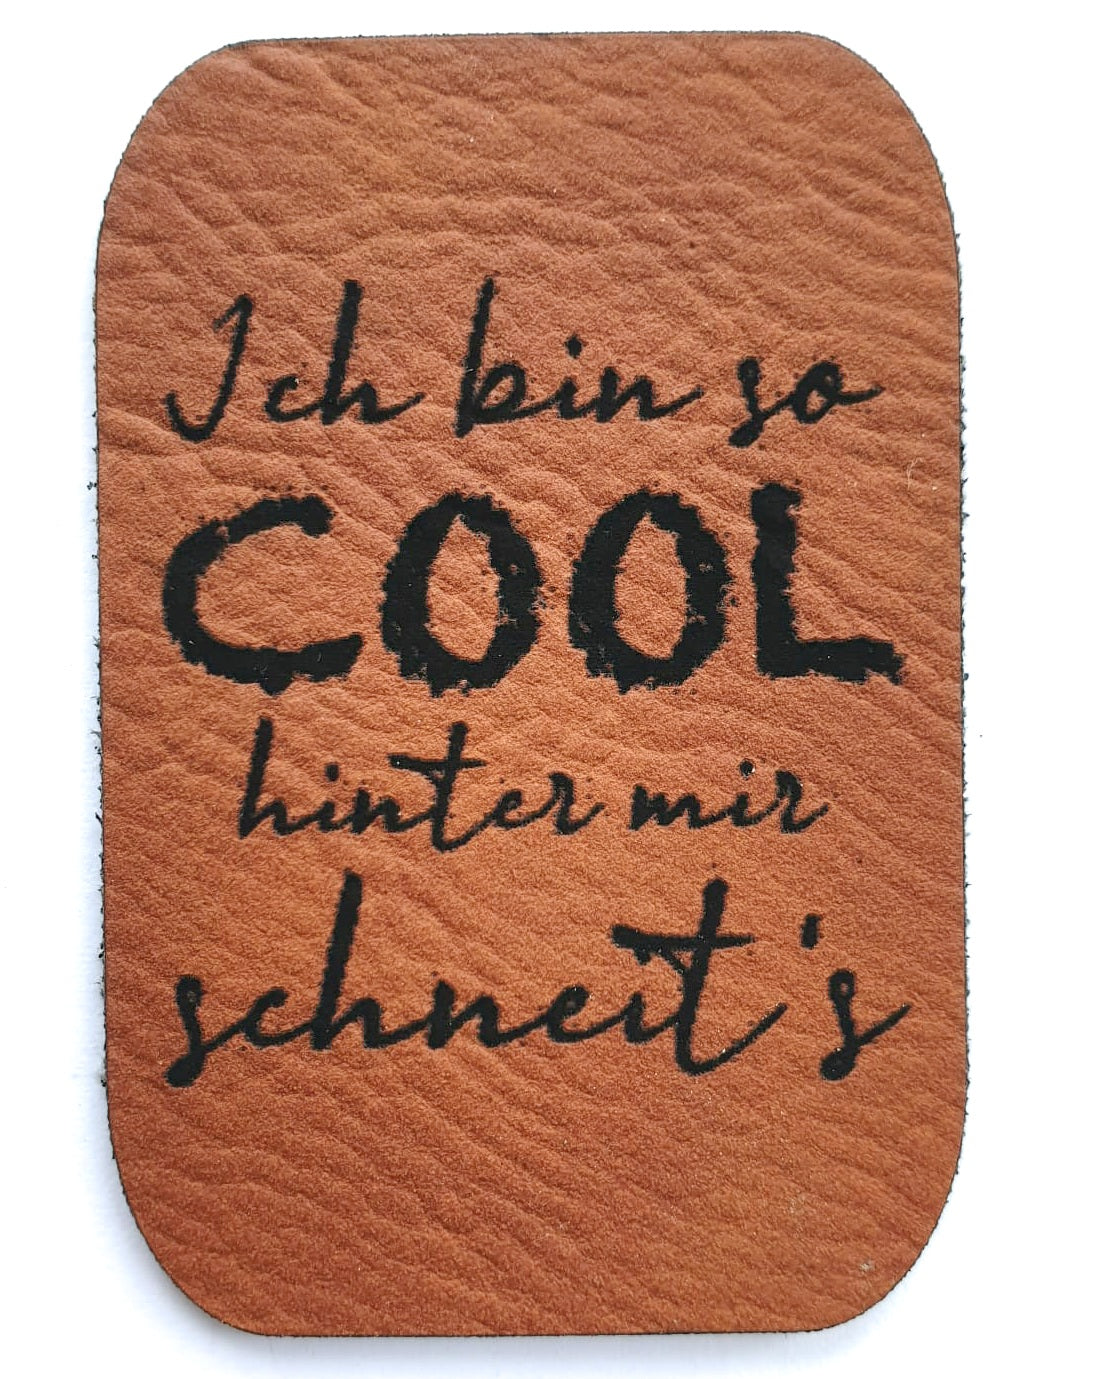 Ich bin so
COOL
hinter mir
schneit's